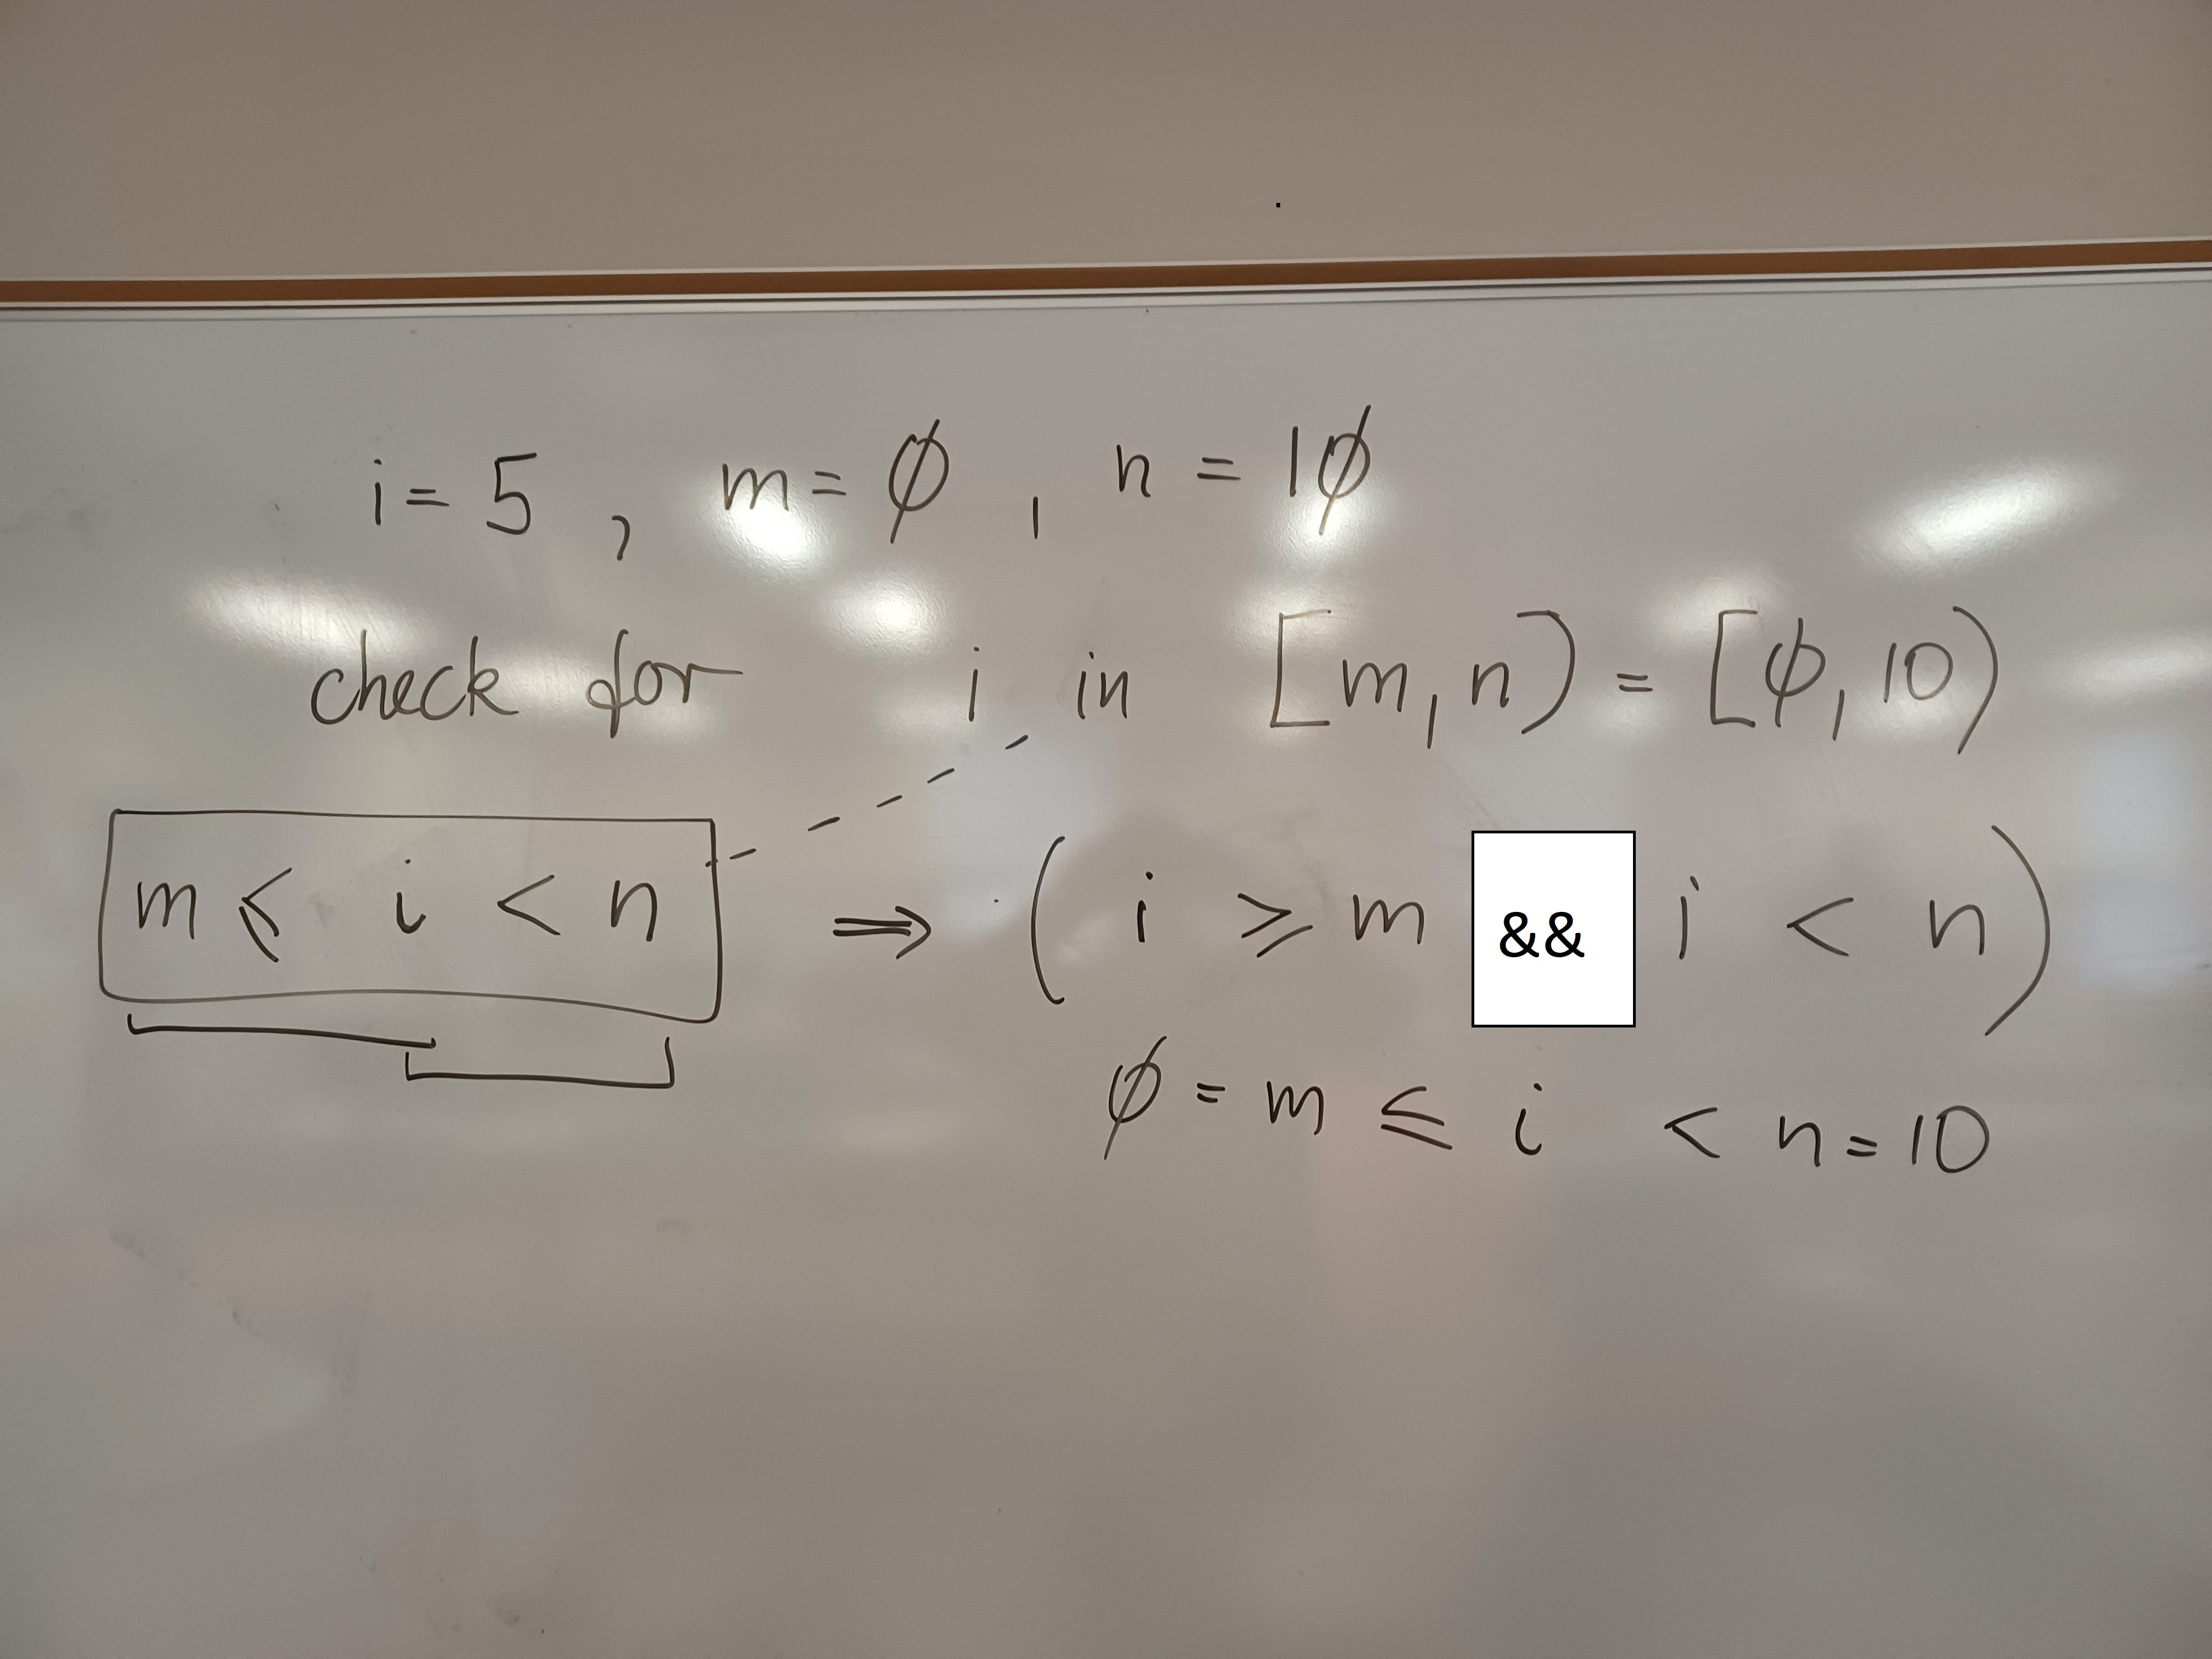 i = 5 , m = ϕ , n = 1ϕ
check for i in [m, n) = [ϕ, 10)
m ≤ i < n ⇒ ( i ≥ m && i < n )
ϕ = m ≤ i < n = 10